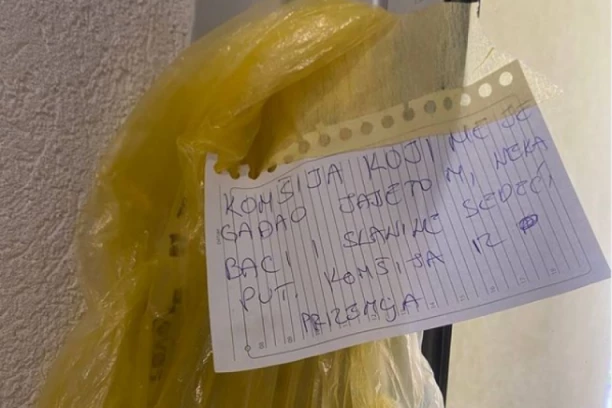 KOMŠIJA KOJI ME JE
GAĐAO JAJETOM, NEKA
BACI I SLANINE SEDEĆI
PUT. KOMŠIJA IZ
PRIZEMJA